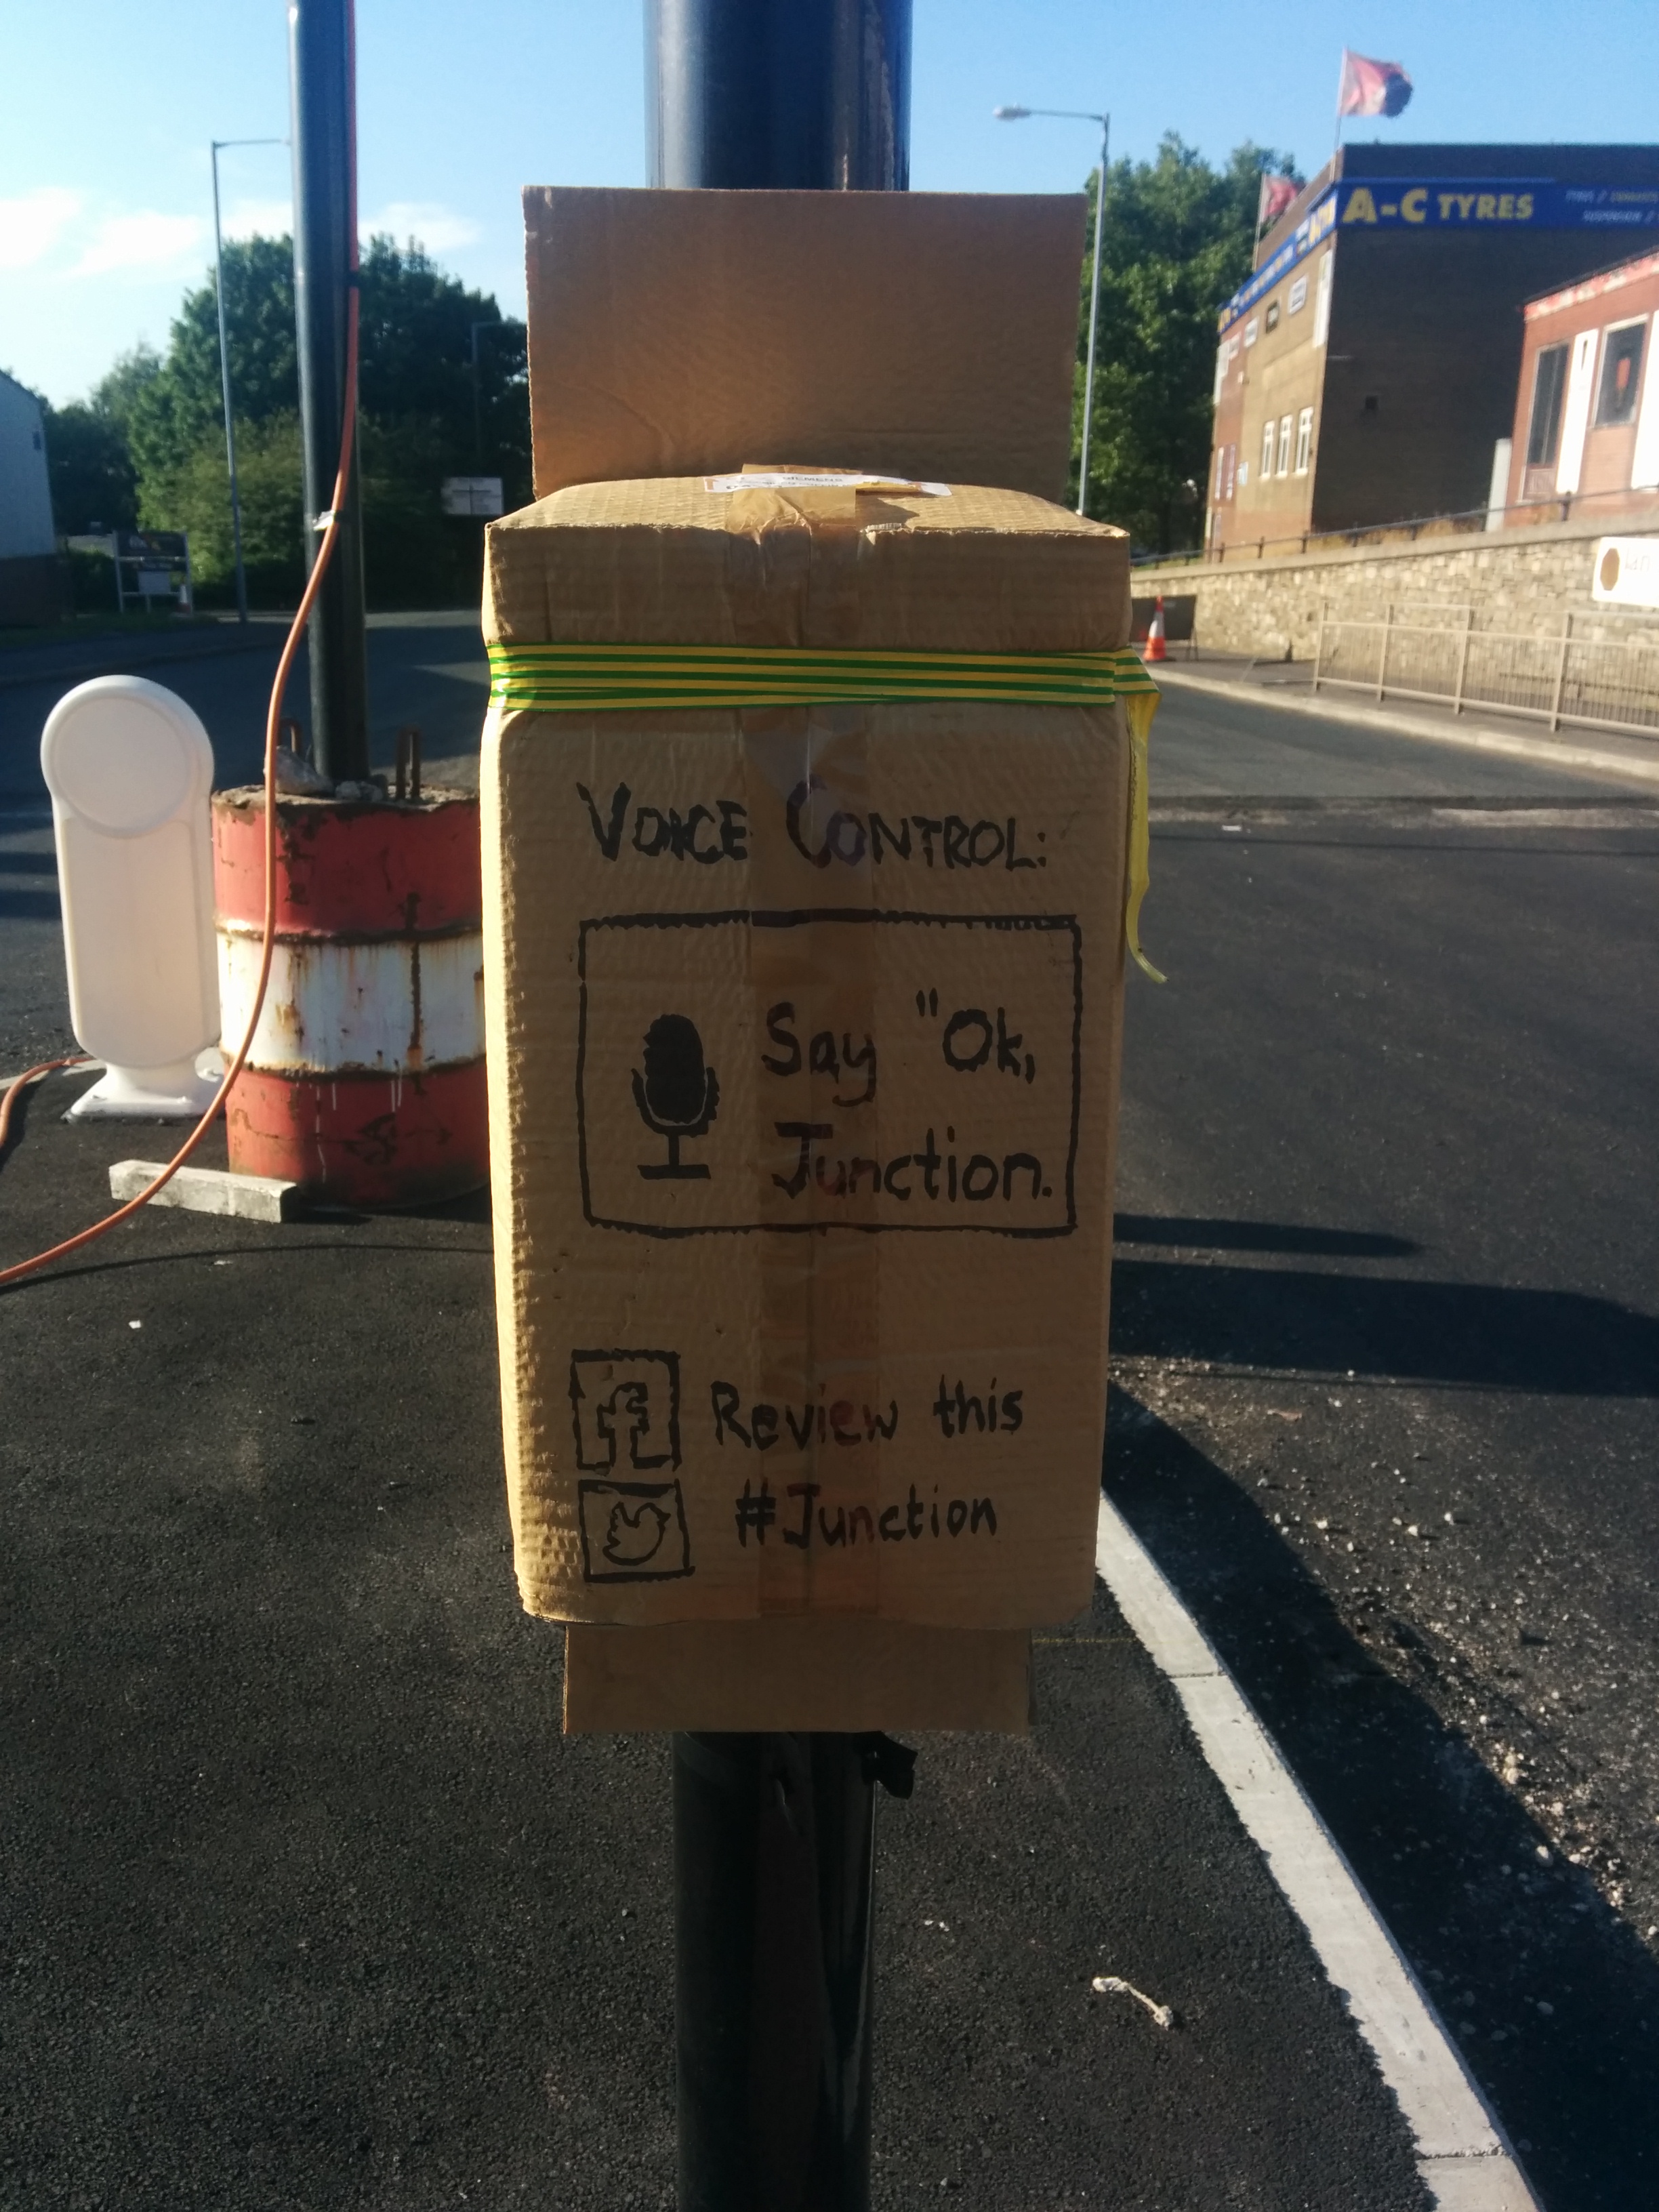 A-C TYRES
SIEMENS
VOICE CONTROL:
Say "Ok,
Junction.
Review this
#Junction